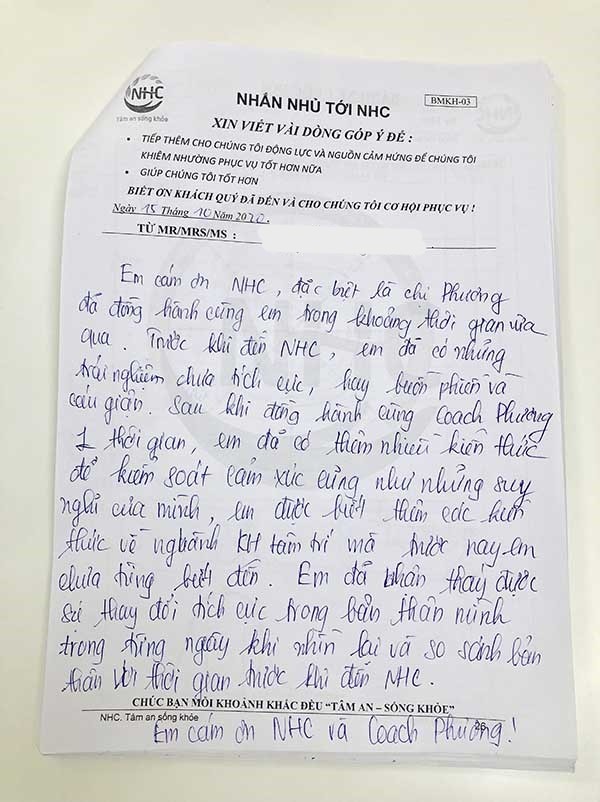 NHC
Tâm an sống khỏe
BMKH-03
NHẮN NHỦ TỚI NHC
XIN VIẾT VÀI DÒNG GÓP Ý ĐỂ :
• TIẾP THÊM CHO CHÚNG TÔI ĐỘNG LỰC VÀ NGUỒN CẢM HỨNG ĐỂ CHÚNG TÔI
KHIÊM NHƯỜNG PHỤC VỤ TỐT HƠN NỮA
• GIÚP CHÚNG TÔI TỐT HƠN
BIẾT ƠN KHÁCH QUÝ ĐÃ ĐẾN VÀ CHO CHÚNG TÔI CƠ HỘI PHỤC VỤ !
Ngày 15 Tháng 10 Năm 2020.
TỪ MR/MRS/MS :
Em cám ơn NHC, đặc biệt là chị Phương
đã đồng hành cùng em trong khoảng thời gian vừa
qua. Trước khi đến NHC, em đã có những
trải nghiệm chưa tích cực, hay buồn phiền và
cáu giận. Sau khi đồng hành cùng Coach Phương
1 thời gian, em đã có thêm nhiều kiến thức
để kiểm soát cảm xúc cũng như những suy
nghĩ của mình, em được biết thêm các kiến
thức về nghành KH tâm trí mà trước nay em
chưa từng biết đến. Em đã nhận thấy được
sự thay đổi tích cực trong bản thân mình
trong từng ngày khi nhìn lại và so sánh bản
thân với thời gian trước khi đến NHC.
CHÚC BẠN MỖI KHOẢNH KHẮC ĐỀU “TÂM AN – SỐNG KHỎE”
NHC. Tâm an sống khỏe
26
Em cám ơn NHC và Coach Phương!